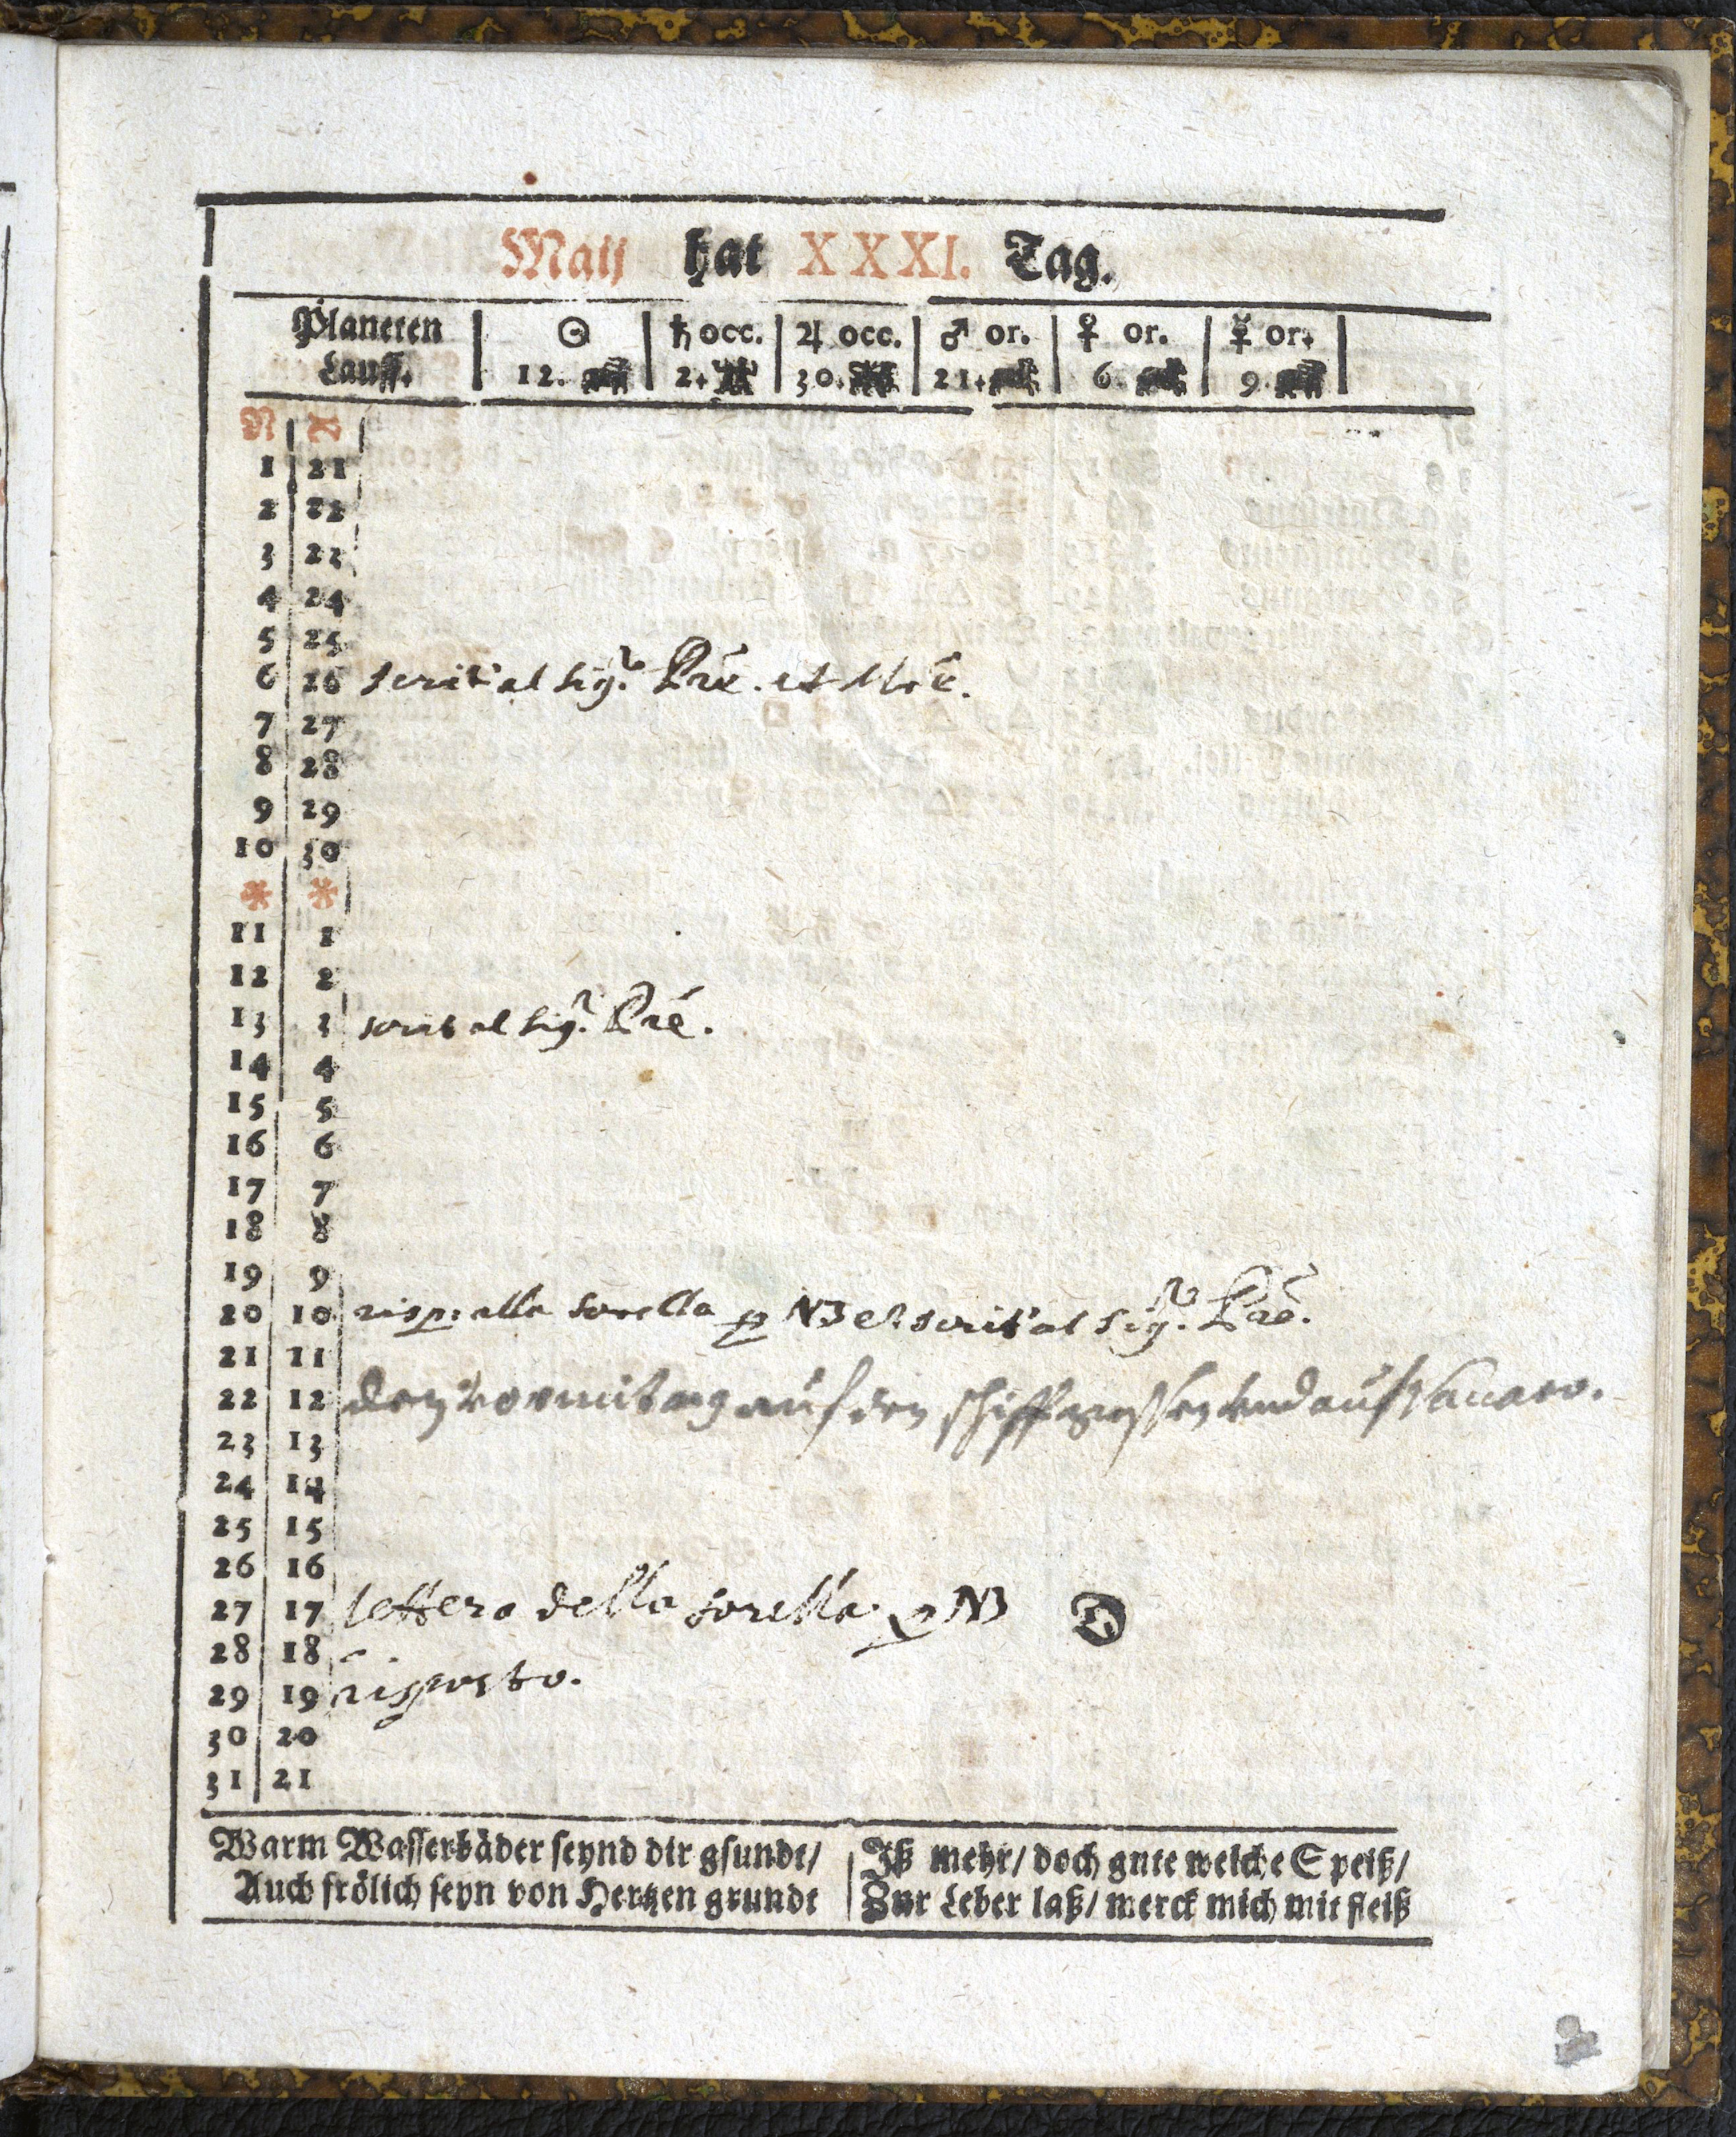 Maij hat XXXI. Tag.
Planeten Lauff. ☉ 12. ♄ occ. 2. ♃ occ. 30. ♂ or. 21. ♀ or. 6. ☿ or. 9.
N A
1 21
2 22
3 23
4 24
5 25
6 26 scrit' al sig.r Pre. et Mre.
7 27
8 28
9 29
10 30
* *
11 1
12 2
13 3 scrit al sig.r Pre.
14 4
15 5
16 6
17 7
18 8
19 9
20 10 risp: alla sorella p NB et scrit' al sig.r Pre.
21 11
22 12 den vormitag auf den schiff vnd auf
23 13
24 14
25 15
26 16
27 17 lettera della sorella p NB
28 18
29 19 risposto.
30 20
31 21
Warm Wasserbäder seynd dir gsundt/
Auch frölich seyn von Hertzen grundt
Iß mehr/ doch gute weiche Speiß/
Zur Leber laß/ merck mich mit fleiß